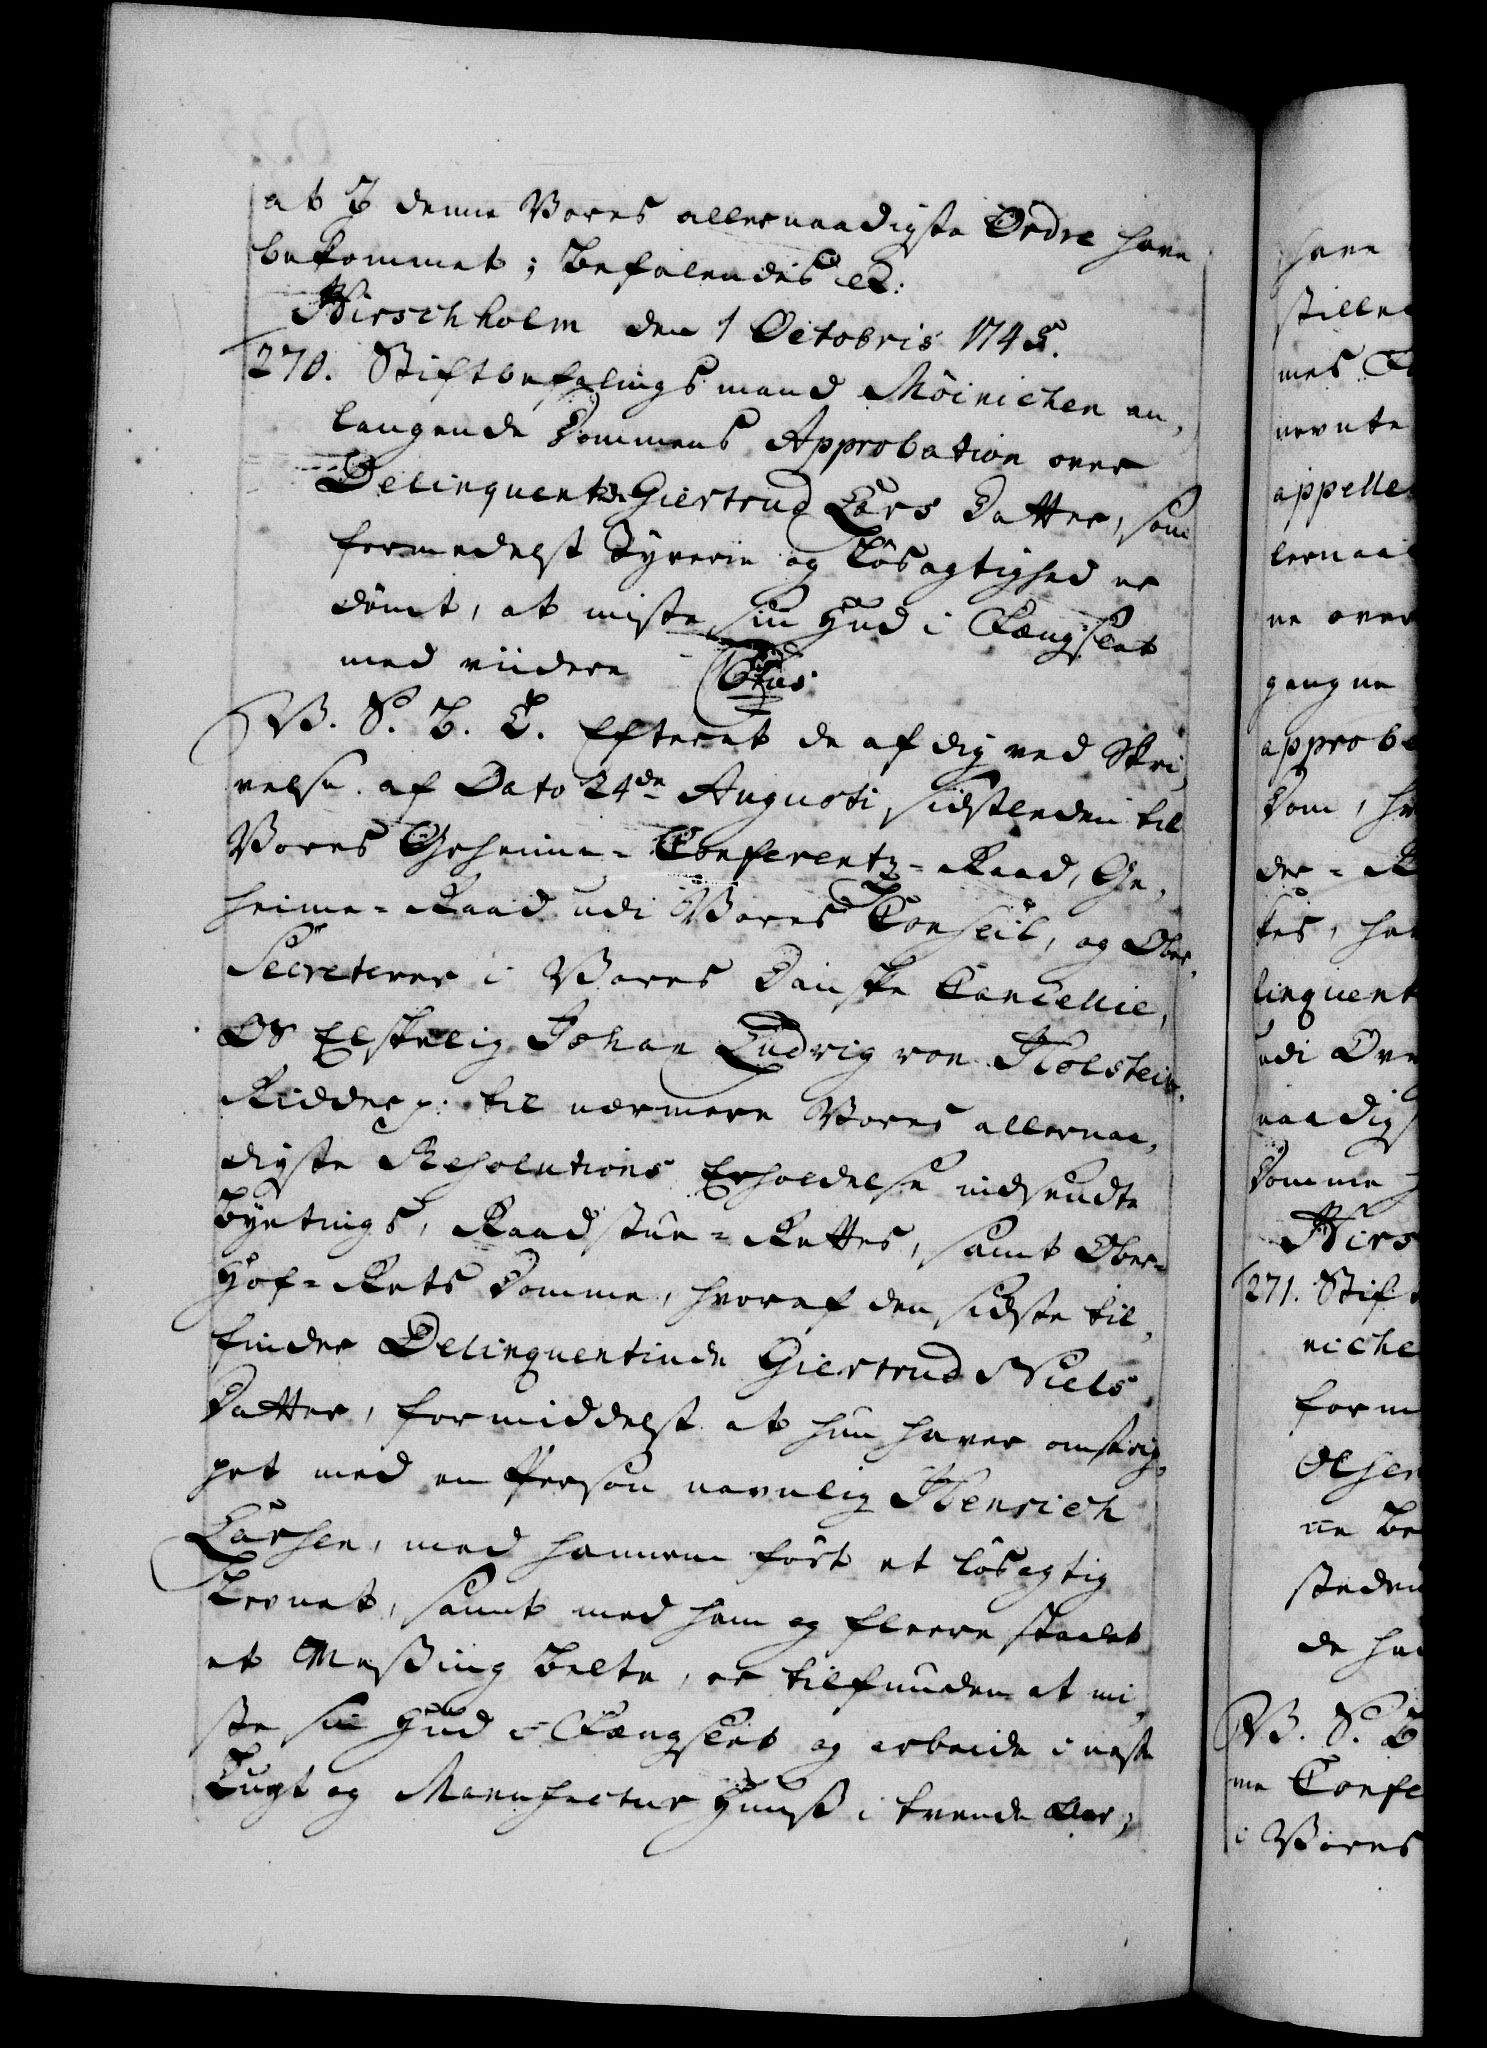 at I denne Vores allernaadigste Ordre have
bekommet; Befalendes etc:
Hirschholm den 1 Octobris 1745.
270. Stiftbefalingsmand Möinichen an,
langende Dommens Approbation over
Delinquentinde Giertrud Lars Datter, som
formedelst Tyverie og Lösagtighed er
dömt, at miste sin Hud i Fængslet
med viidere
V. S. B. T. Efterat de af dig ved Skri,
velse af Dato 24de Augusti sidstleden til
Vores Geheime-Conferentz-Raad, Ge,
heime-Raad udi Vores Conseil, og Ober,
Secreterer i Vores Danske Cancellie,
Os Elskelig Johan Ludvig von Holstein
Ridder p: til nærmere Vores allernaa,
digste Resolutions Erholdelse indsendte
Byetings, Raadstue-Rettes, samt Ober-
Hof-Rets Domme, hvoraf den sidste til,
finder Delinquentinde Giertrud Niels
Datter, formiddelst at hun haver omstrip,
pet med en Person navnlig Henrich
Larsen, med hannem fört et lösagtig
Levnet, samt med ham og fleere staalet
et Messing Belte, er tilfunden at mi,
ste sin Hud i Fængslet og arbeide i neste
Tugt og Manufactur Huuss i trende Aar;
have
stille
mes
nevnte
appelle
lernaa
ne over
gangne
approbe
Dom, h
der-R
tes, ha
linquent
udi Ove
naadigs
Domme
Hirs
271. Stift
niche
form
Olsen
ne Be
steden
de ha
V. S. B
me Confe
i Vores